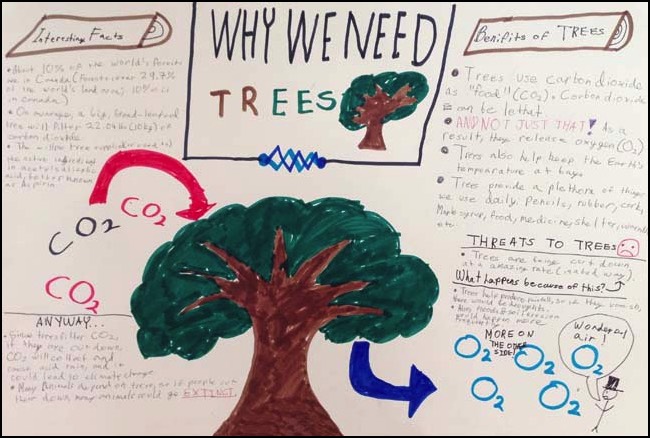 WHY WE NEED
TREES
Interesting Facts
• About 10% of the world's forests
are in Canada (Forests cover 29.7%
of the world's land area; 10% is in
Canada)
• On average, a big,
tree will filter 22.04lb (10kg) of
carbon dioxide
• The willow tree used to
the active ingredient
in
acid, better known
as Aspirin
CO2
CO2
CO2
ANYWAY...
• Since trees filter CO2,
if they are cut down,
CO2 will collect and
cause acid rain, and it
could lead to climate change
• Many Animals depend on trees, so if people cut
them down, many animals could go EXTINCT.
Benifits of TREES
• Trees use carbon dioxide
as "food" (CO2). Carbon dioxide
can be lethal
• AND NOT JUST THAT! As a
result, they release oxygen (O2)
• Trees also help keep the Earth's
temperature at bay
• Trees provide a plethora of things
we use daily. Pencils, rubber, cork,
Maple syrup, food, medicine, shelter,
etc.
THREATS TO TREES
• Trees are being cut down
at a amazing rate (in a bad way)
What happens because of this?
• Trees help produce rainfall, so if they vanish,
there would be droughts.
• Also floods + soil erosion
would happen more
frequently
MORE ON
THE OTHER
SIDE!
Wonderful
air!
O2 O2 O2
O2 O2